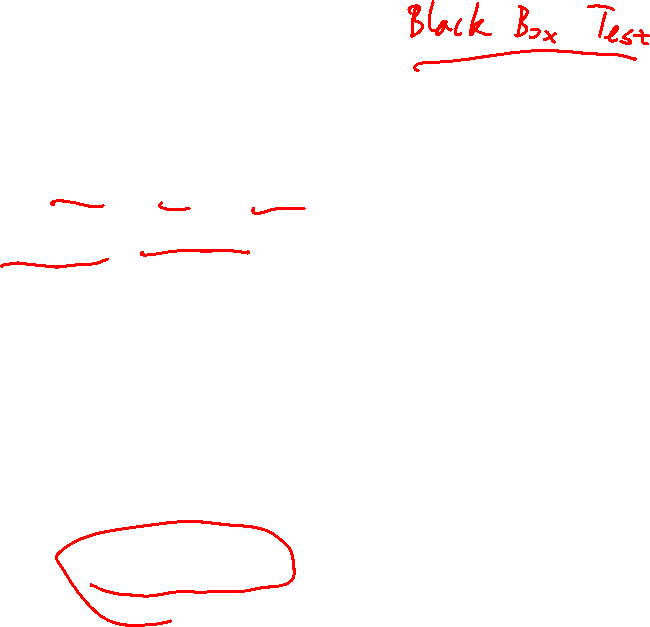 Black Box Test